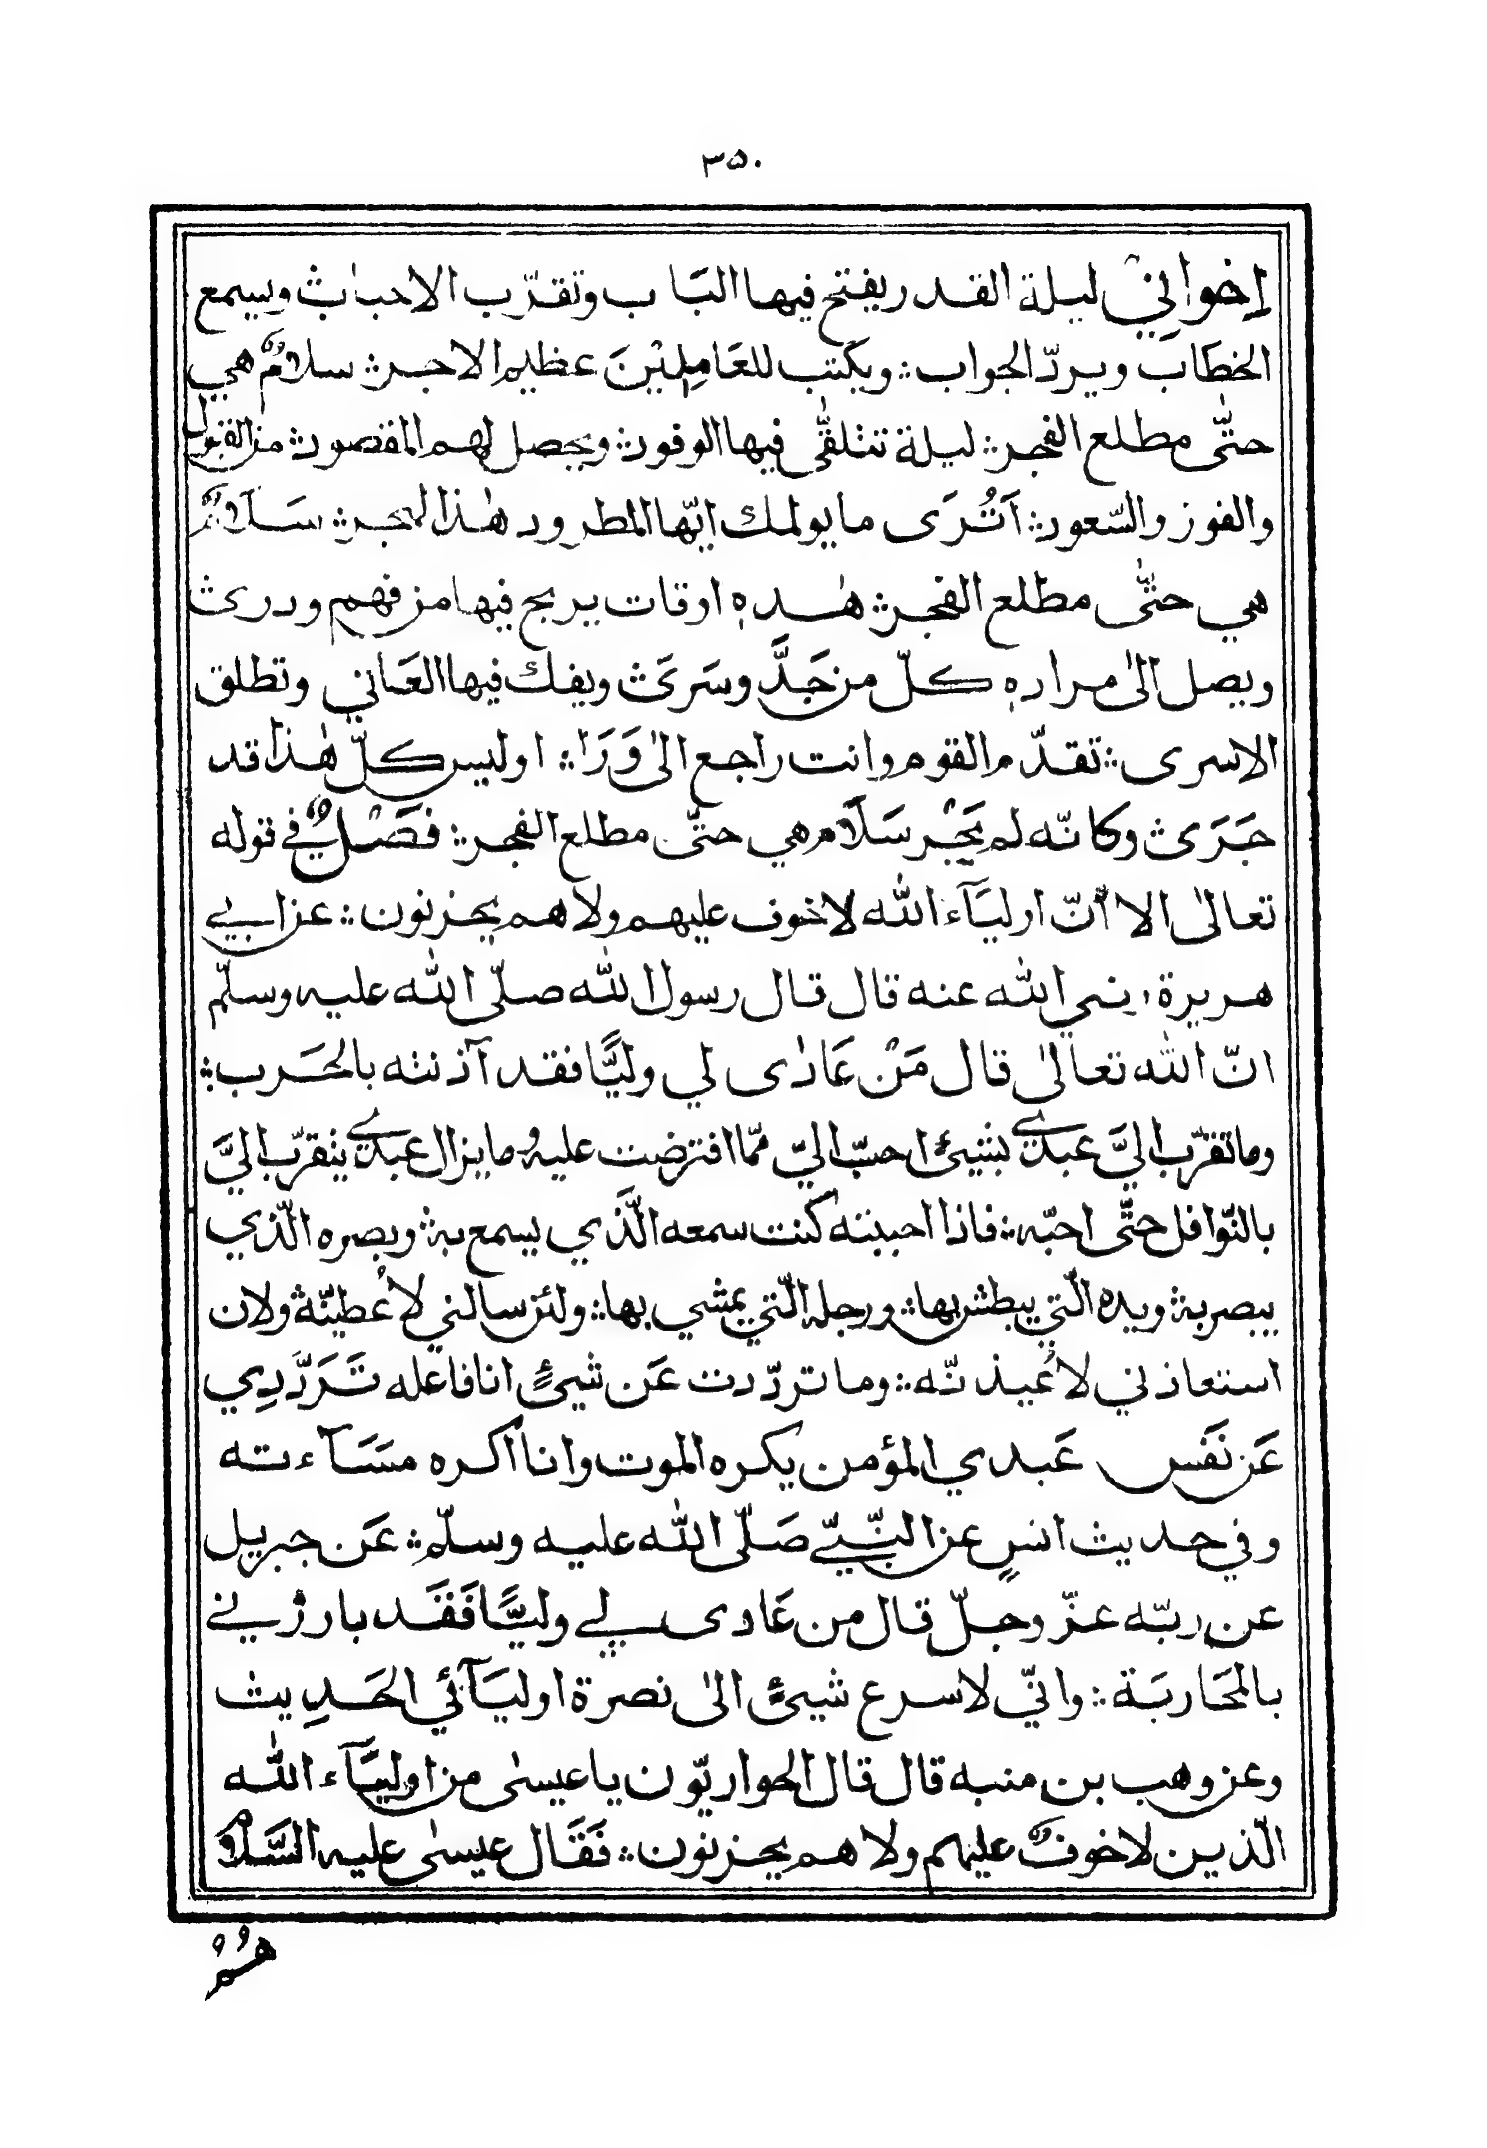 ٣٥٠
اخواني ليلة القدر يفتح فيها الباب وتقرّب الاحباب ؞ ويسمع
الخطاب ويردّ الجواب ؞ ويكتب للعَامِلِيْنَ عظيم الاجر ؞ سلامٌ هي
حتّٰى مطلع الفجر ؞ ليلة تتلقّٰى فيها الوفود ؞ ويحصل لهم المقصود ؞ من القبول
والفوز والسّعود ؞ اَتُرَى ما يولمك ايّها المطرود هٰذا الهجر ؞ سَلَامٌ
هي حتّٰى مطلع الفجر ؞ هٰذه اوقات يربح فيها من فهم ودرى ؞
ويصل الىٰ مراده كلّ من جَدَّ وسَرَىَ ؞ ويفك فيها العَاني وتطلق
الاسرى ؞ تقدّم القوم وانت راجع الىٰ وَرَا ؞ اوليس كلّ هٰذا قد
جَرَى ؞ وكانّه لم يَجْر سَلَام هي حتّٰى مطلع الفجر ؞ فَصْلٌ في قوله
تعالىٰ الا اَنّ اوليَآء الله لا خوف عليهم ولا هم يحزنون ؞ عن ابي
هريرة رضي الله عنه قال قال رسول الله صلّى الله عليه وسلّم
انّ الله تعالىٰ قال مَنْ عَادٰى لي وليًّا فقد آذنته بالحَرب ؞
وما تقرّب اليَّ عبدي بشيئ احبّ اليّ ممّا افترضت عليه وما يزال عبدي يتقرّب اليَّ
بالنّوافل حتّٰى احبّه ؞ فاذا احببته كنت سمعه الّذي يسمع به ؞ وبصره الّذي
يبصر به ؞ ويده الّتي يبطش بها ؞ ورجله الّتي يمشي بها ؞ ولئن سالني لاُعطينّه ؞ ولان
استعاذني لاُعيذنّه ؞ وما تردّدت عَن شيئٍ انا فاعله تَرَدُّدِي
عَن نَفَس عَبدي المؤمن يكره الموت وانا اكره مسَآءته
وفي حديث انسٍ عن النّبيّ صَلّى الله عليه وسلّم ؞ عَن جبريل
عن ربّه عزّ وجلّ قال من عَادى لي وليًّا فَقَد بارزني
بالمحَاربَة ؞ وانّي لاسرع شيئٍ الىٰ نصرة اوليَآئي الحَدِيث
وعن وهب بن منبه قال قال الحواريّون يا عيسىٰ من اوليَآء الله
الّذين لا خوفٌ عليهم ولا هم يحزنون ؞ فَقَال عيسىٰ عليه السَّلَام
هُمُ